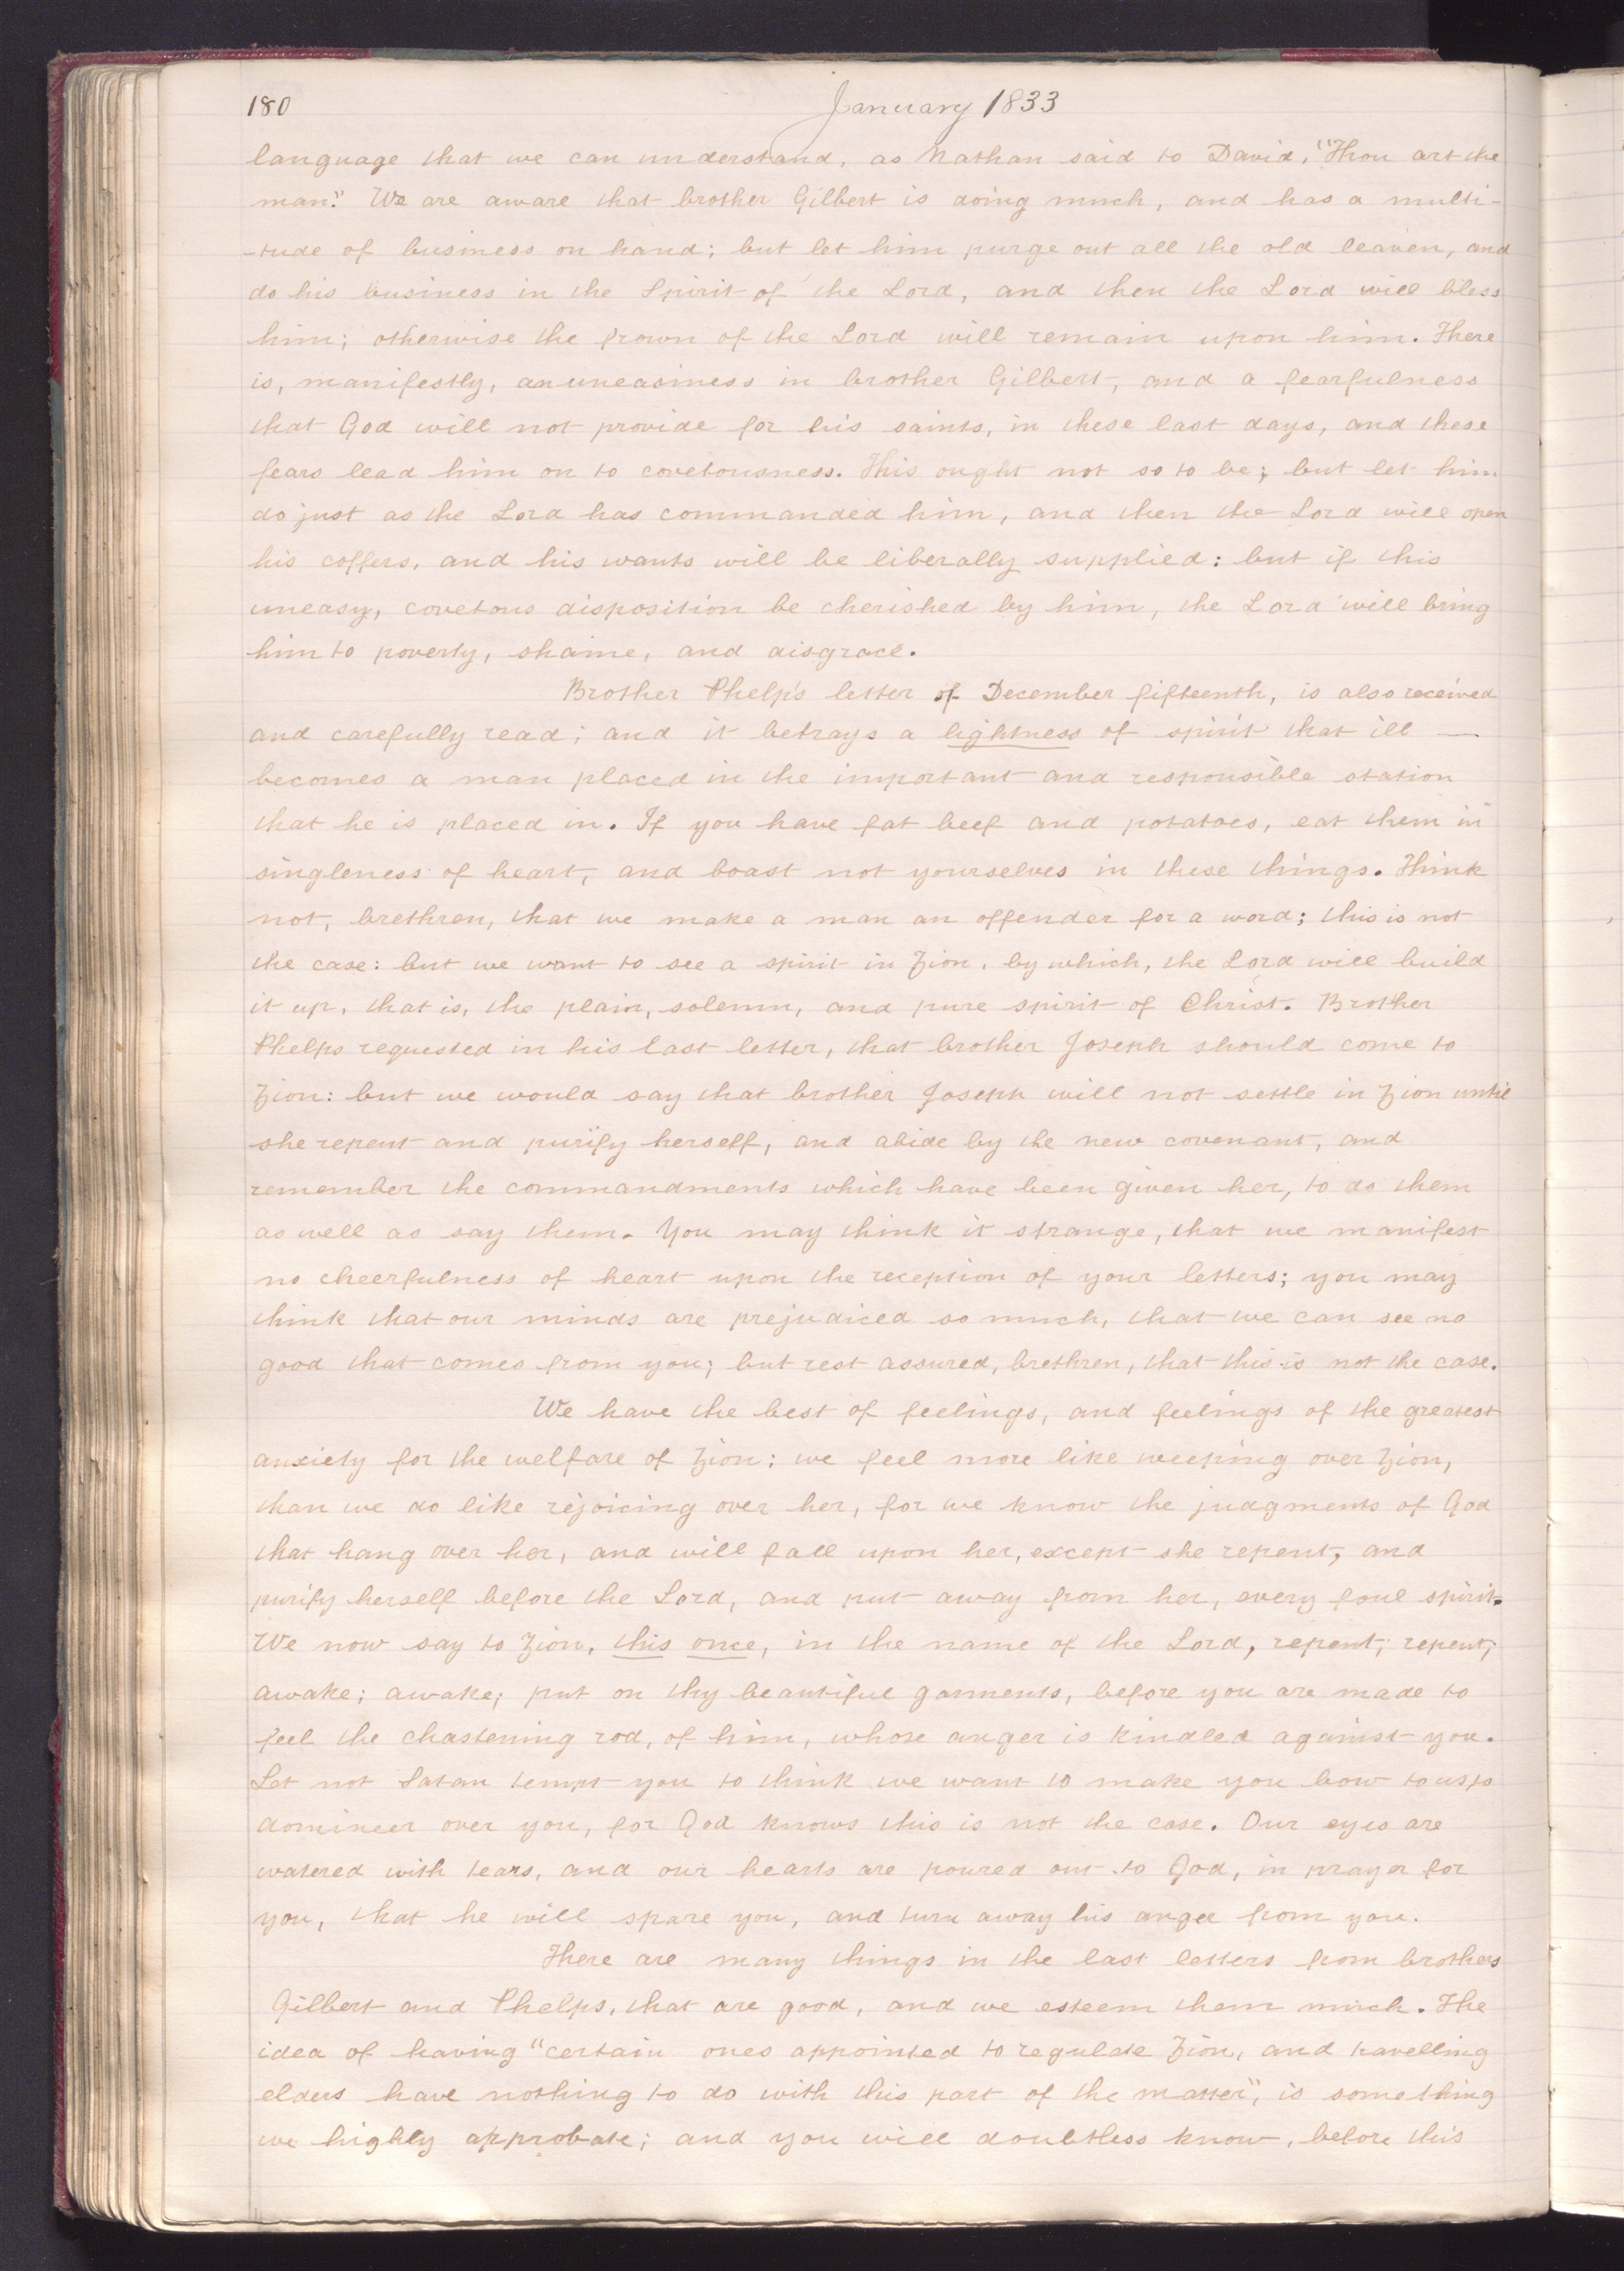 180
January 1833
language that we can understand, as Nathan said to David, "Thou art the
man." We are aware that brother Gilbert is doing much, and has a multi-
-tude of business on hand; but let him purge out all the old leaven, and
do his business in the Spirit of the Lord, and then the Lord will bless
him; otherwise the frown of the Lord will remain upon him. There
is, manifestly, an uneasiness in brother Gilbert, and a fearfulness
that God will not provide for his saints, in these last days, and these
fears lead him on to covetousness. This ought not so to be; but let him
do just as the Lord has commanded him, and then the Lord will open
his coffers, and his wants will be liberally supplied: but if this
uneasy, covetous disposition be cherished by him, the Lord will bring
him to poverty, shame, and disgrace.
Brother Phelp's letter of December fifteenth, is also received
and carefully read; and it betrays a lightness of spirit that ill —
becomes a man placed in the important and responsible station
that he is placed in. If you have fat beef and potatoes, eat them in
singleness of heart, and boast not yourselves in these things. Think
not, brethren, that we make a man an offender for a word; this is not
the case: but we want to see a spirit in Zion, by which, the Lord will build
it up, that is, the plain, solemn, and pure spirit of Christ. Brother
Phelps requested in his last letter, that brother Joseph should come to
Zion: but we would say that brother Joseph will not settle in Zion until
she repent and purify herself, and abide by the new covenant, and
remember the commandments which have been given her, to do them
as well as say them. You may think it strange, that we manifest
no cheerfulness of heart upon the reception of your letters; you may
think that our minds are prejudiced so much, that we can see no
good that comes from you; but rest assured, brethren, that this is not the case.
We have the best of feelings, and feelings of the greatest
anxiety for the welfare of Zion: we feel more like weeping over Zion,
than we do like rejoicing over her, for we know the judgments of God
that hang over her, and will fall upon her, except she repent, and
purify herself before the Lord, and put away from her, every foul spirit.
We now say to Zion, this once, in the name of the Lord, repent; repent;
awake; awake; put on thy beautiful garments, before you are made to
feel the chastening rod, of him, whose anger is kindled against you.
Let not Satan tempt you to think we want to make you bow to us, to
domineer over you, for God knows this is not the case. Our eyes are
watered with tears, and our hearts are poured out to God, in prayer for
you, that he will spare you, and turn away his anger from you.
There are many things in the last letters from brothers
Gilbert and Phelps, that are good, and we esteem them much. The
idea of having "certain ones appointed to regulate Zion, and travelling
elders have nothing to do with this part of the matter", is something
we highly approbate; and you will doubtless know, before this